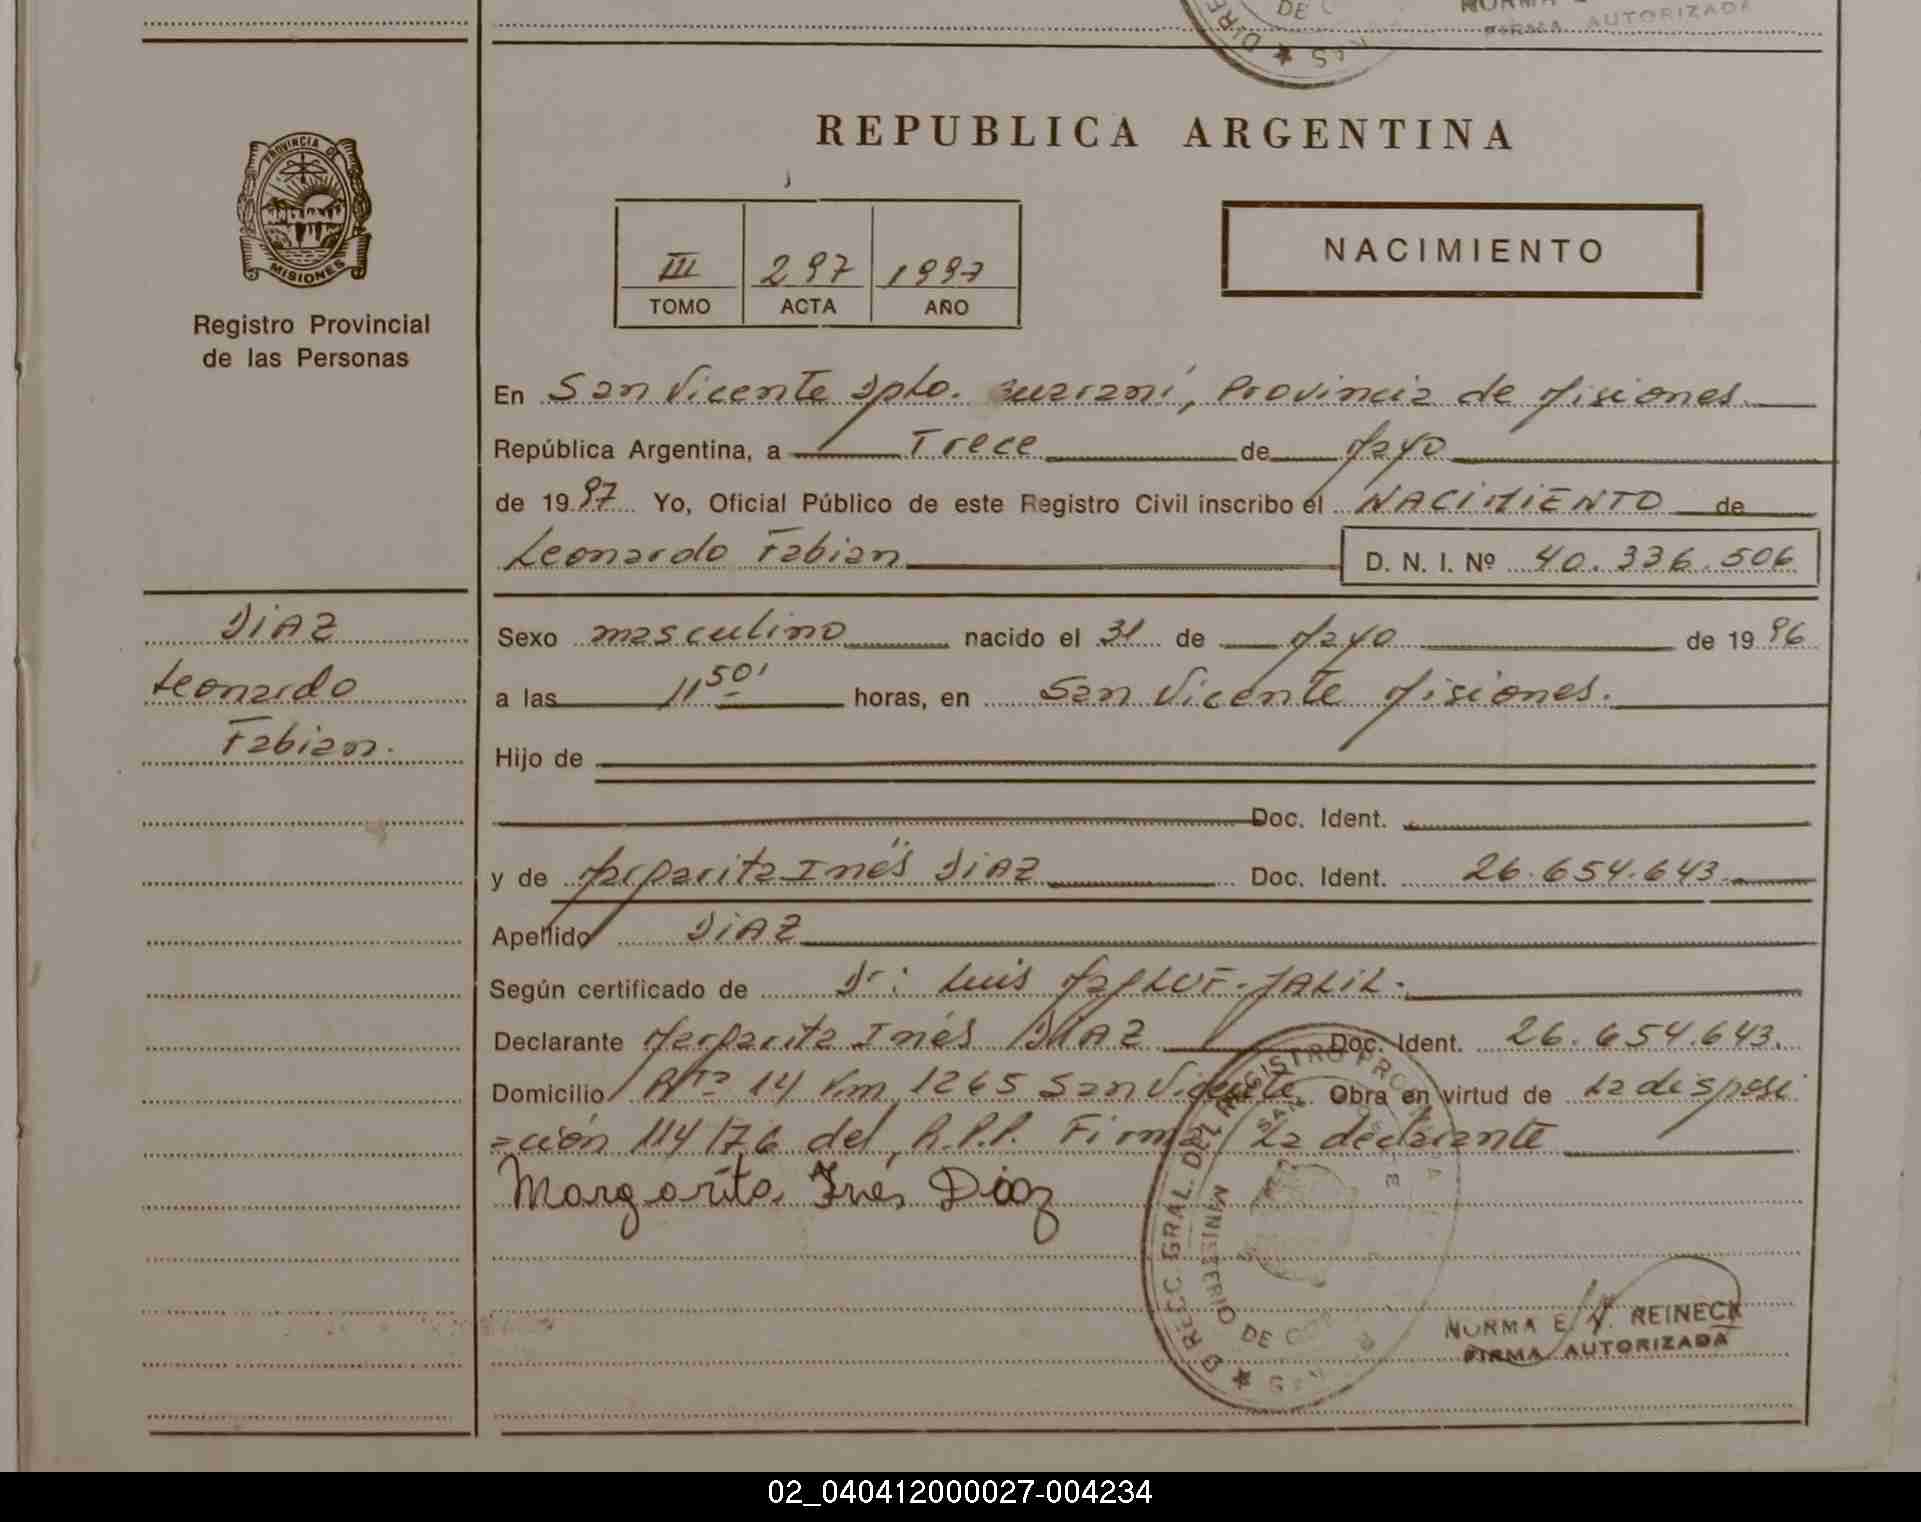 DE
FIRMA AUTORIZADA
REPUBLICA ARGENTINA
PROVINCIA DE
MISIONES
Registro Provincial
de las Personas
III 297 1997
TOMO ACTA AÑO
NACIMIENTO
En San Vicente Dpto. Guaraní, Provincia de Misiones
República Argentina, a Trece de Mayo
de 1997 Yo, Oficial Público de este Registro Civil inscribo el NACIMIENTO de
Leonardo Fabian D. N. I. Nº 40.336.506
DIAZ
Leonardo
Fabian.
Sexo masculino nacido el 31 de Mayo de 1996
a las 11 50' horas, en San Vicente Misiones.
Hijo de
Doc. Ident.
y de Margarita Inés DIAZ Doc. Ident. 26.654.643
Apellido DIAZ
Según certificado de Dr: Luis MAJLUF-JALIL.
Declarante Margarita Inés DIAZ Doc. Ident. 26.654.643.
Domicilio Rta 14 Km 1265 San Vicente Obra en virtud de La disposi
=ción 114/76 del R.P.P. Firma La declarante
Margarita Inés Díaz
NORMA E. V. REINECK
FIRMA AUTORIZADA
02_040412000027-004234